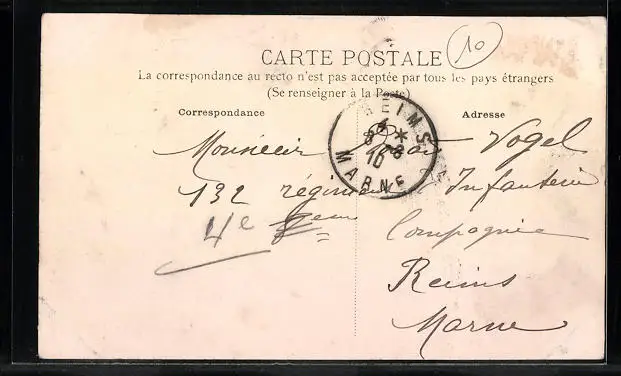 10
CARTE POSTALE
La correspondance au recto n'est pas acceptée par tous les pays étrangers
(Se renseigner à la Poste)
Correspondance
Adresse
REIMS
10
MARNE
Monsieur Vogel
132 régiment Infanterie
4e Compagnie
Reims
Marne